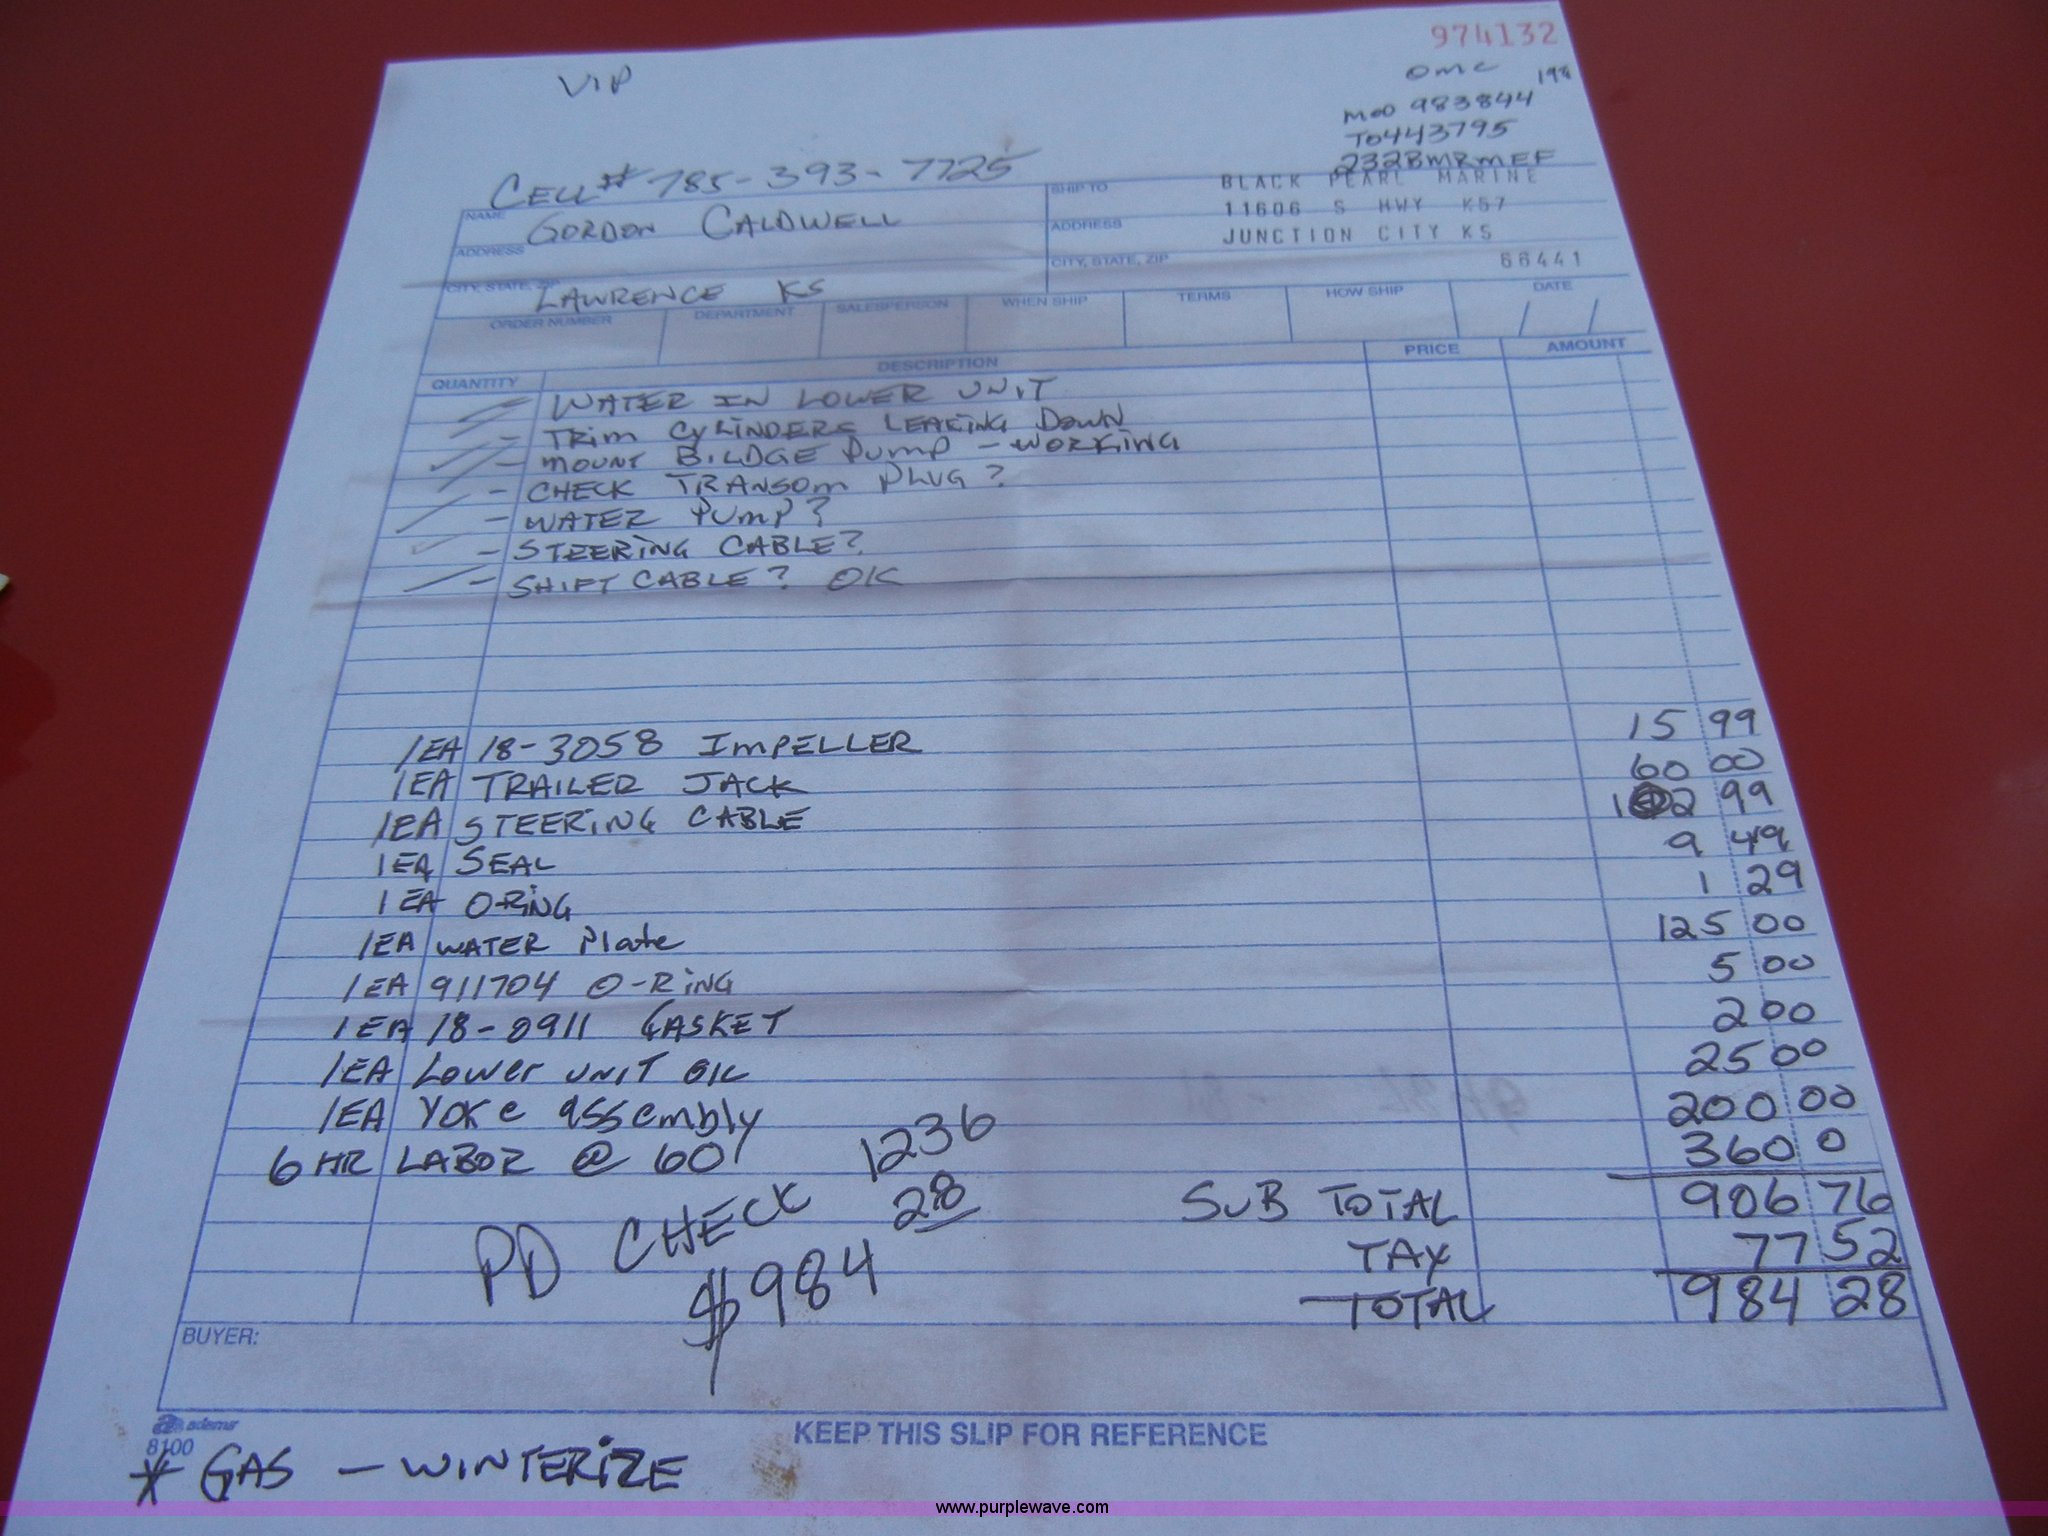 974132
VIP
OMC 198
MOD 983844
TO443795
232BMRMEF
CELL# 785-393-7725
NAME GORDON CALDWELL
ADDRESS
CITY, STATE, ZIP LAWRENCE KS
SHIP TO BLACK PEARL MARINE
ADDRESS 11606 S HWY K57
JUNCTION CITY KS
CITY, STATE, ZIP 66441
ORDER NUMBER DEPARTMENT SALESPERSON WHEN SHIP TERMS HOW SHIP DATE
/ /
QUANTITY DESCRIPTION PRICE AMOUNT
WATER IN LOWER UNIT
- TRIM CYLINDERS LEAKING DOWN
- MOUNT BILDGE PUMP - WORKING
- CHECK TRANSOM PLUG?
- WATER PUMP?
- STEERING CABLE?
- SHIFT CABLE? OK
1EA 18-3058 IMPELLER 15 99
1EA TRAILER JACK 60 00
1EA STEERING CABLE 102 99
1EA SEAL 9 49
1EA O-RING 1 29
1EA WATER Plate 125 00
1EA 911704 O-RING 5 00
1EA 18-0911 GASKET 2 00
1EA Lower UNIT OIL 25 00
1EA YOKE assembly 200 00
6 HR LABOR @ 60 360 0
SUB TOTAL 906 76
TAX 77 52
TOTAL 984 28
PD CHECK 1236
$984 28
BUYER:
adams
8100
KEEP THIS SLIP FOR REFERENCE
* GAS - WINTERIZE
www.purplewave.com